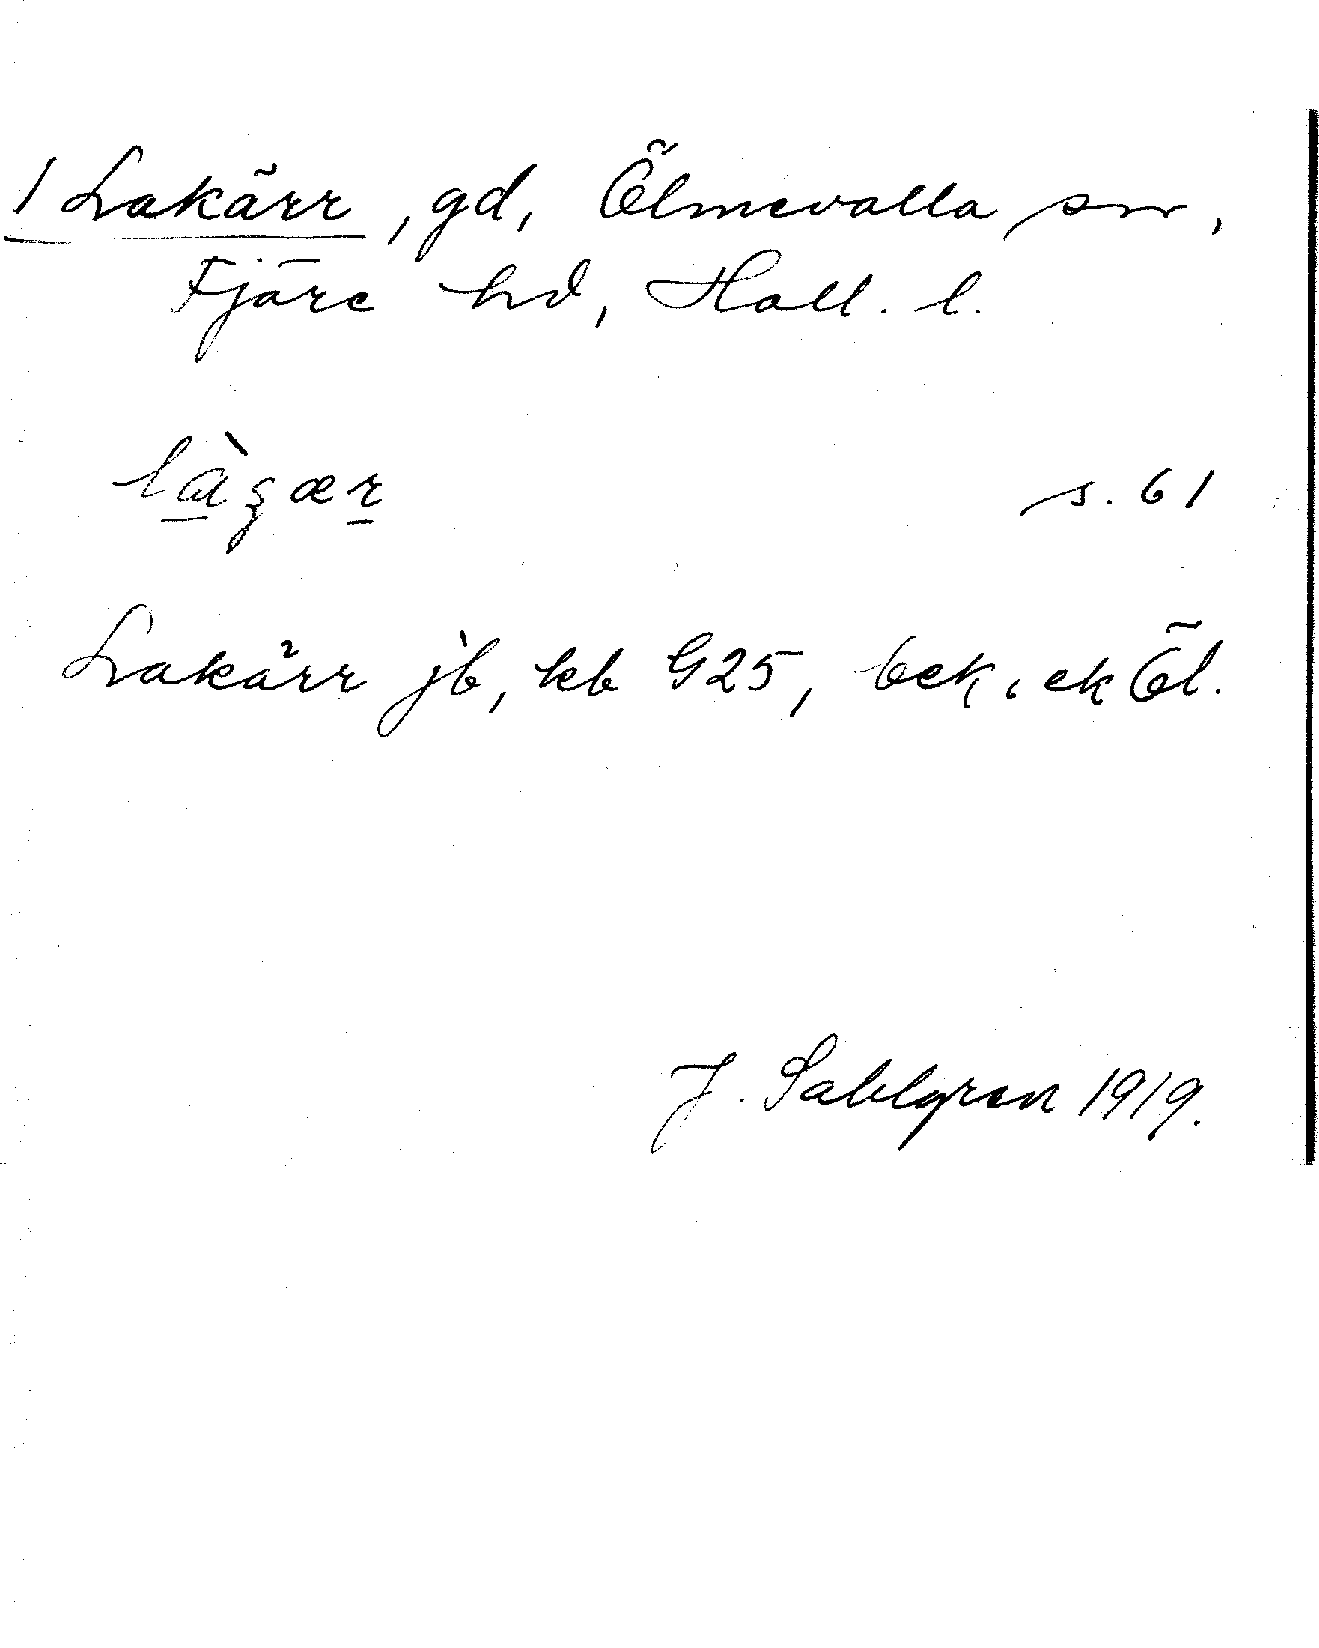 1 Lakärr, gd, Ölmevalla sn,
Fjäre hd, Hall. l.
làgær s. 61
Lakärr jb, kb G25, bek, ek Öl.
J. Sahlgren 1919.